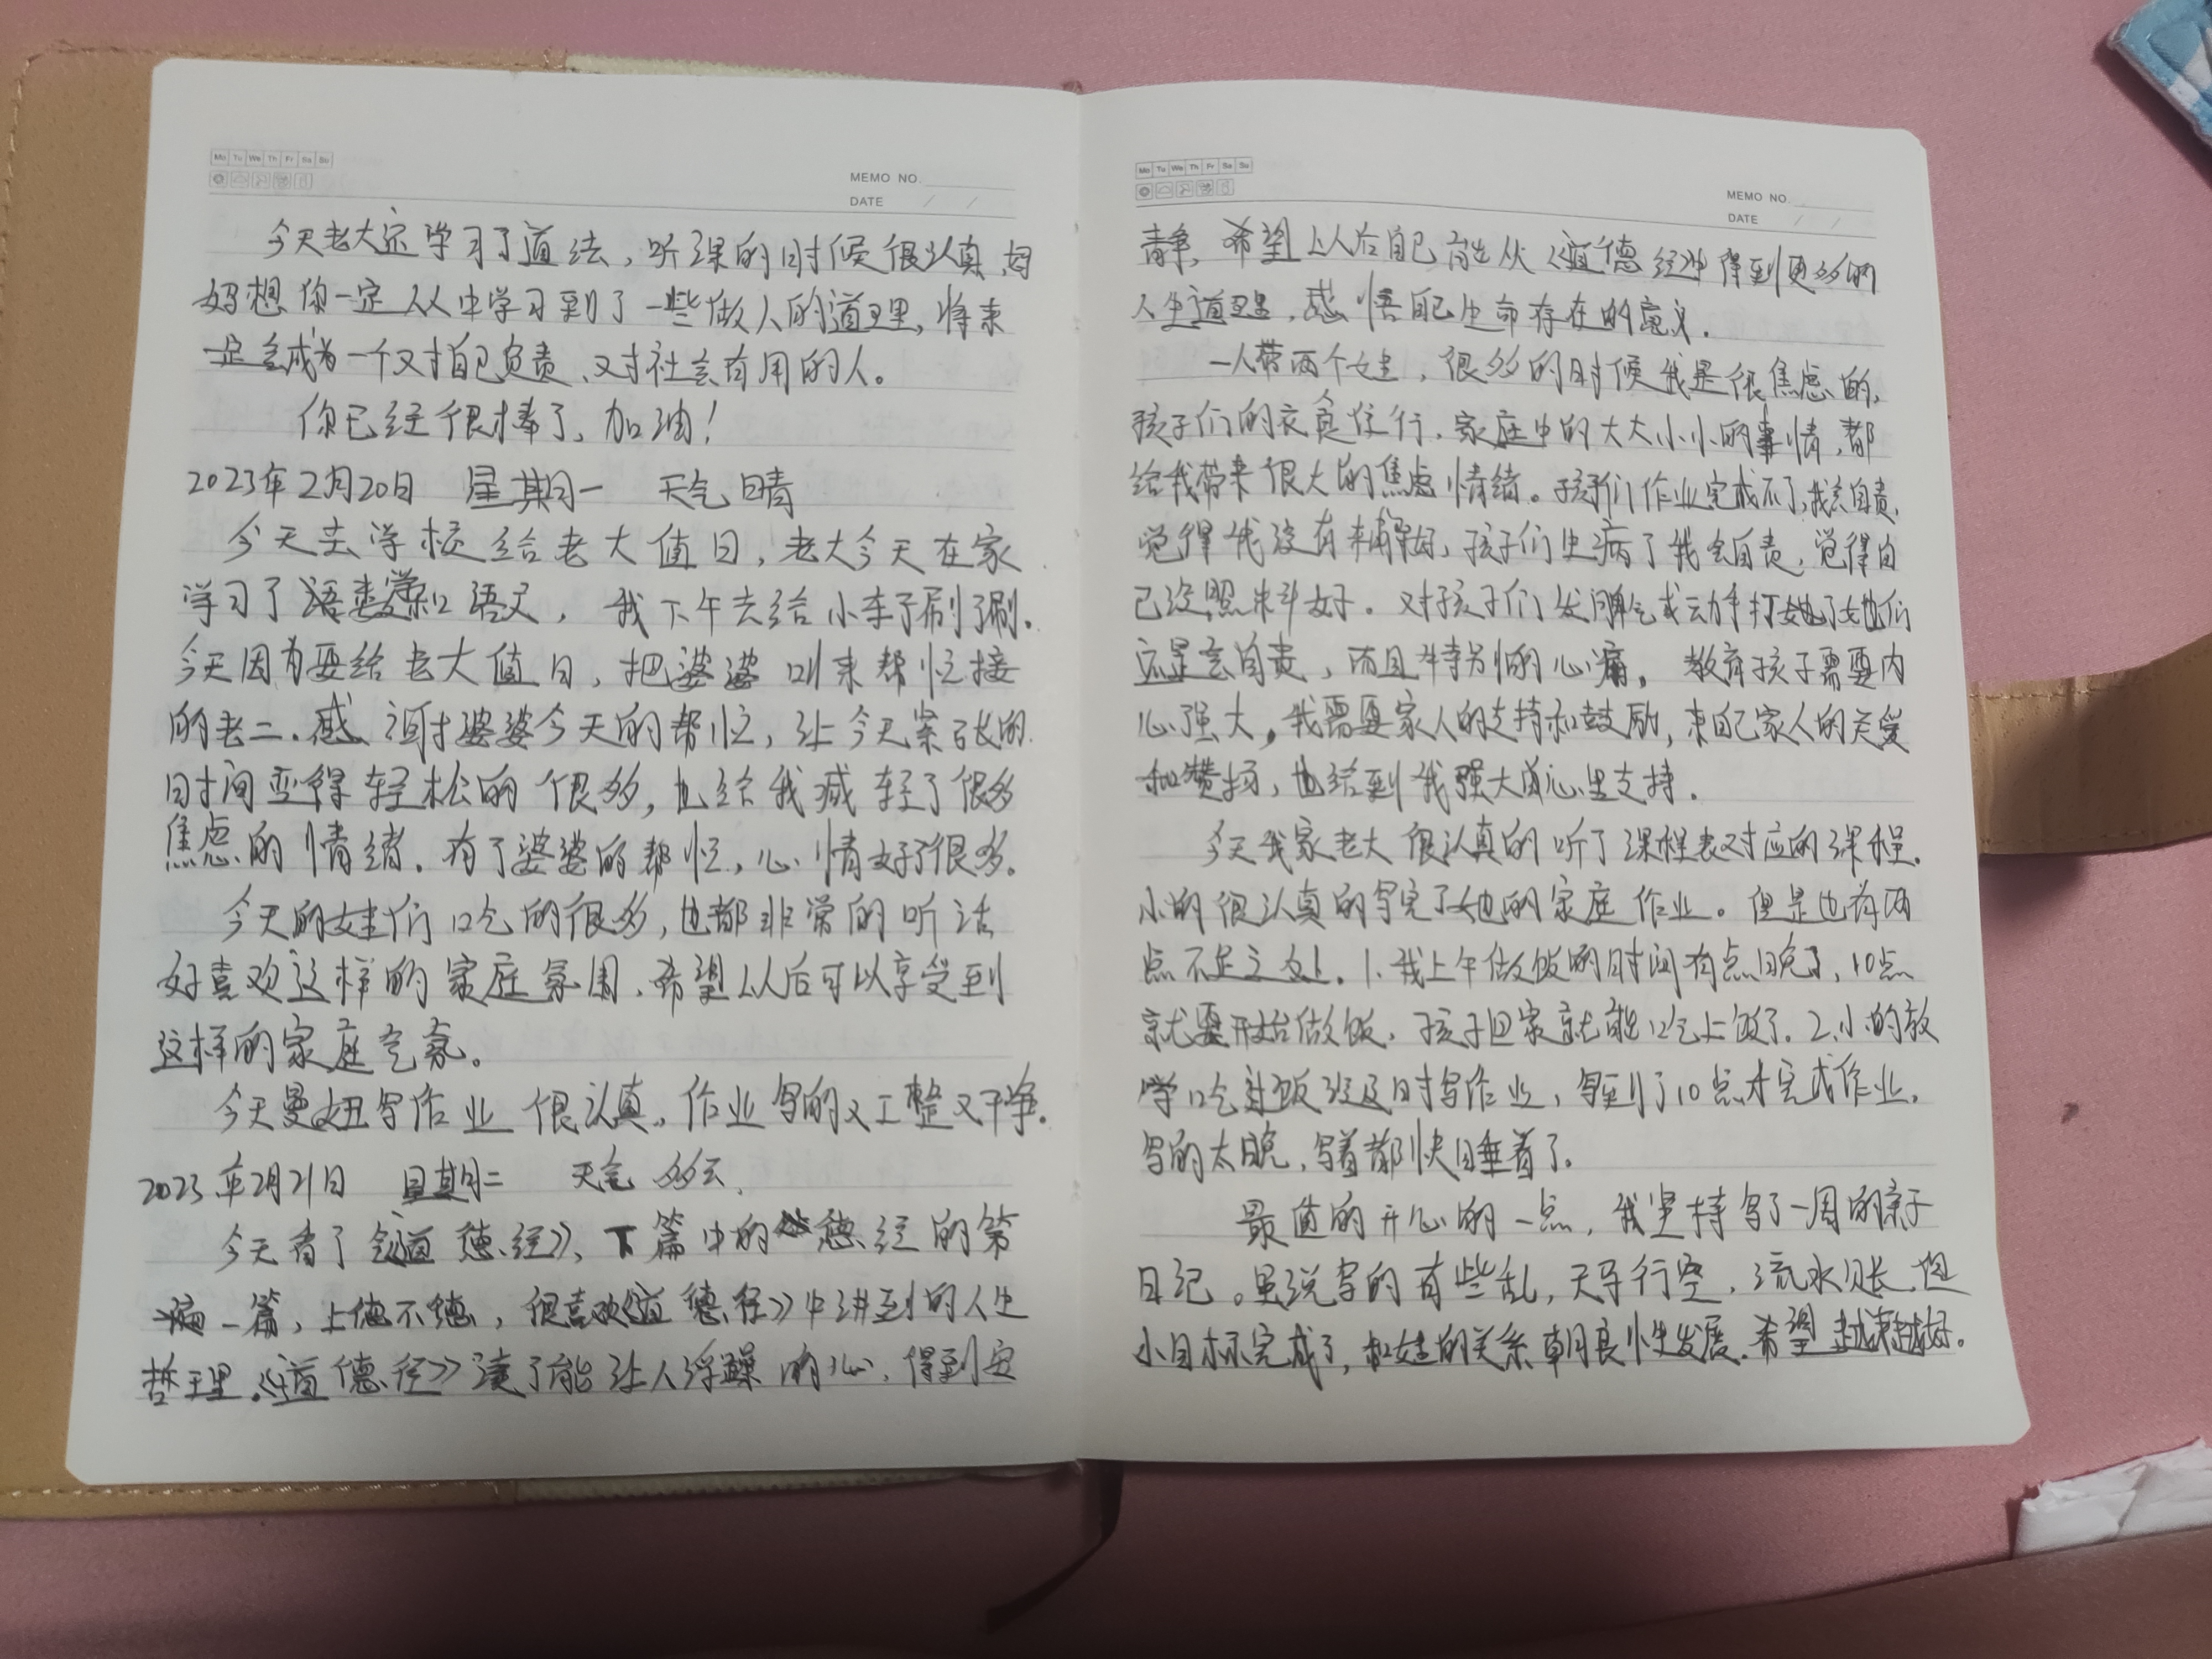 Mo Tu We Th Fr Sa Su
MEMO NO.
DATE / /
今天老大还学习了道法，听课的时候很认真，妈
妈想你一定从中学习到了一些做人的道理，将来
一定会成为一个又对自己负责、又对社会有用的人。
你已经很棒了，加油！
2023年2月20日 星期一 天气晴
今天去学校给老大值日，老大今天在家
学习了语文，我下午去给小车子刷了刷。
今天因为要给老大值日，把婆婆叫来帮忙接
的老二。感谢婆婆今天的帮忙，让今天紧张的
时间变得轻松的很多，也给我减轻了很多
焦虑的情绪。有了婆婆的帮忙，心情好了很多。
今天的娃们吃的很多，也都非常的听话
好喜欢这样的家庭氛围，希望以后可以享受到
这样的家庭气氛。
今天曼妞写作业很认真，作业写的又工整又干净。
2023年2月21日 星期二 天气 多云
今天看了《道德经》，下篇中的德经的第
一篇，上德不德，很喜欢《道德经》中讲到的人生
哲理。《道德经》读了能让人浮躁的心，得到安
Mo Tu We Th Fr Sa Su
MEMO NO.
DATE / /
静，希望以后自己能从《道德经》中得到更多的
人生道理，感悟自己生命存在的意义。
一人带两个娃，很多的时候我是很焦虑的，
孩子们的衣食住行，家庭中的大大小小的事情，都
给我带来很大的焦虑情绪。孩子们作业完成不了，我会自责，
觉得我没有辅导好，孩子们生病了我会自责，觉得自
己没照料好。对孩子们发脾气或动手打了她们
还是会自责，而且特别的心痛。教育孩子需要内
心强大，我需要家人的支持和鼓励，来自己家人的关爱
和赞扬，也给到我强大的心里支持。
今天我家老大很认真的听了课程表对应的课程。
小的很认真的写完了她的家庭作业。但是也有两
点不足之处。1.我上午做饭的时间有点晚了，10点
就要开始做饭，孩子回家就能吃上饭了。2.小的放
学吃过饭没及时写作业，写到了10点才完成作业，
写的太晚，写着都快睡着了。
最值的开心的一点，我坚持写了一周的亲子
日记。虽说写的有些乱，天马行空，流水账，但
小目标完成了，和娃的关系朝良性发展。希望越来越好。